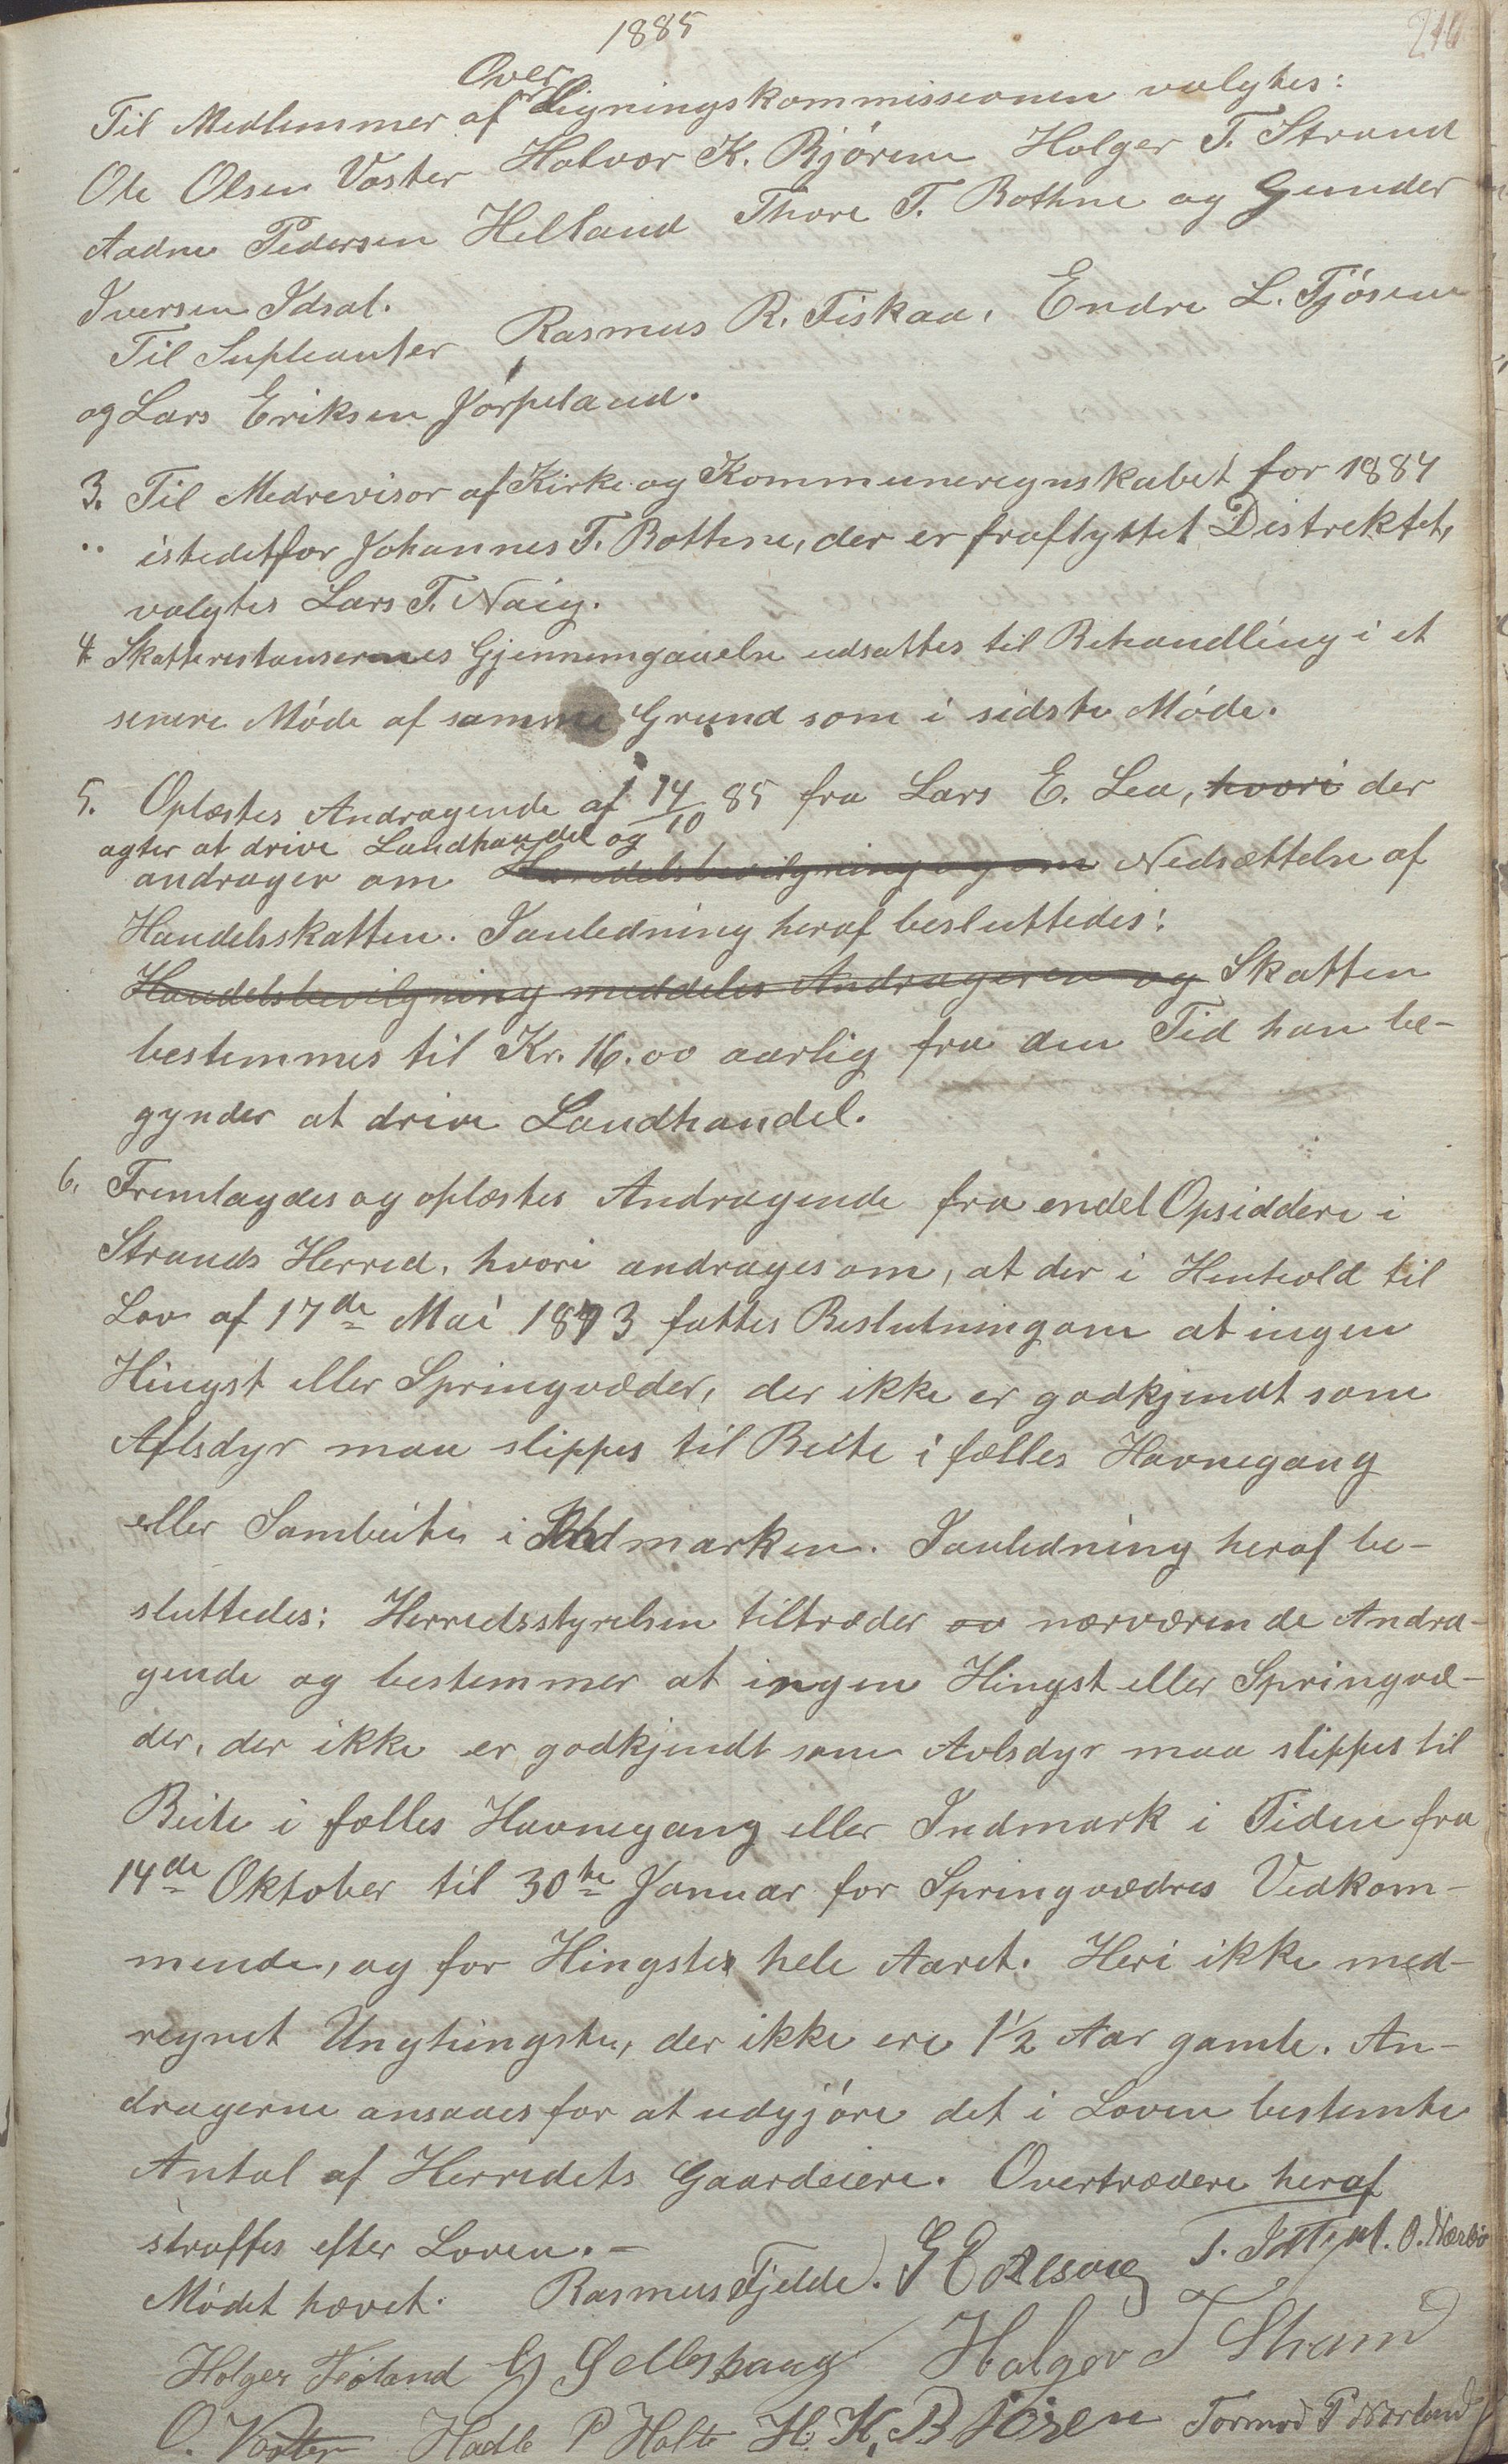 1885
210
Til Medlemmer af Over Ligningskommissionen valgtes:
Ole Olsen Vaster Halvor K. Bjøren Holger T. Strand
Aadne Pedersen Helland Thore T. Bothne og Gunder
Iversen Idsal.
Til Supleanter Rasmus R. Fiskaa, Endre L. Tjøsem
og Lars Eriksen Jørpeland.
3. Til Medrevisor af Kirke og Kommuneregnskabet for 1884
istedetfor Johannes T. Bothne, der er fraflyttet Distrektet,
valgtes Lars T. Naig.
4 Skatterestansernes Gjennemgaaelse udsattes til Behandling i et
senere Møde af samme Grund som i sidste Møde.
5. Oplæstes Andragende af 14/10 85 fra Lars E. Lea, hvori der
agter at drive Landhandel og
andrager om Handelsbevilgning og om Nedsættelse af
Handelsskatten. Ianledning heraf besluttedes:
Handelsbevilgning meddeles Andrageren og Skatten
bestemmes til Kr. 16.00 aarlig fra den Tid han be-
gynder at drive Landhandel.
6. Fremlagdes og oplæstes Andragende fra endel Opsiddere i
Strands Herred, hvori andrages om, at der i Henhold til
Lov af 17de Mai 1873 fattes Beslutning om at ingen
Hingst eller Springvæder, der ikke er godkjendt som
Aflsdyr maa slippes til Beite i fælles Havnegang
eller Sambeite i Indmarken. Ianledning heraf be-
sluttedes: Herredsstyrelsen tiltræder ov nærværende Andra-
gende og bestemmer at ingen Hingst eller Springvæ-
der, der ikke er godkjendt som Avlsdyr maa slippes til
Beite i fælles Havnegang eller Indmark i Tiden fra
14de Oktober til 30te Januar for Springvædres Vedkom-
mende, og for Hingster hele Aaret. Heri ikke med-
regnet Unghingste, der ikke ere 1½ Aar gamle. An-
dragerne ansaaes for at udgjøre det i Loven bestemte
Antal af Herredets Gaardeiere. Overtrædere heraf
straffes efter Loven.-
Mødet hævet. Rasmus Fjelde. T. O. Nærbø
Holger Høland G Holger T Strand
O. Vaster Hadle P Holte H. K. Bjøren Tormod P Norland